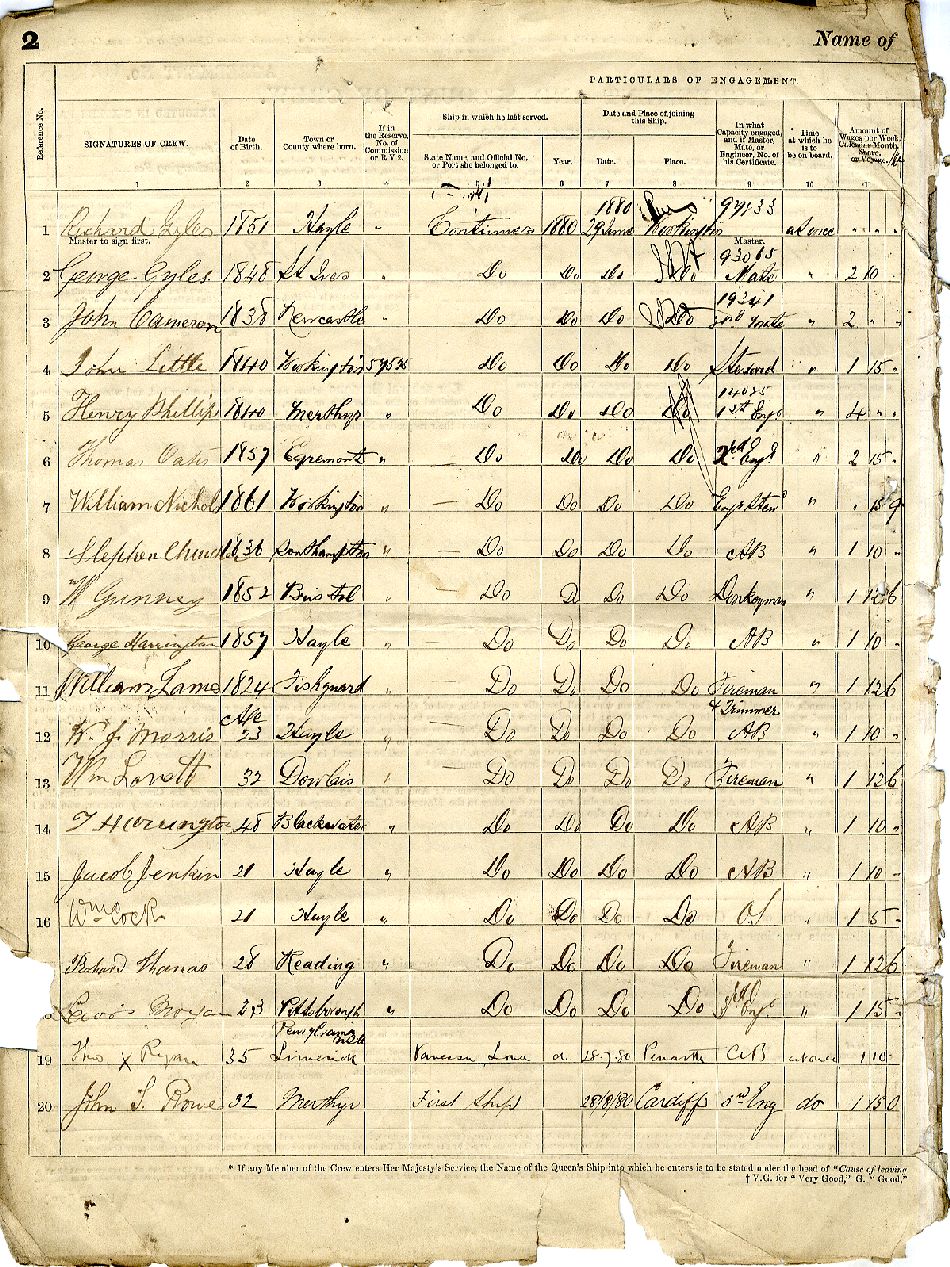 2 Name of
PARTICULARS OF ENGAGEMENT.
Reference No.
SIGNATURES OF CREW.
Date of Birth.
Town or County where born.
If in the Reserve, No. of Commission or R.V 2.
Ship in which he last served.
State Name and Official No. or Port she belonged to.
Year.
Date and Place of joining this Ship.
Date.
Place.
In what Capacity engaged, and if Master, Mate, or Engineer, No. of his Certificate.
Time at which he is to be on board.
Amount of Wages per Week, Calendar Month, Share, or Voyage.
1 2 3 4 5 6 7 8 9 10 11
1880
1 Richard 1851 Hayle " Continues 1880 29 June Workington at once " " "
Master to sign first. Master.
93065
2 George Eyles 1848 St Ives " Do Do Do Do Mate " 2 10 "
19341
3 John Cameron 1838 Newcastle " Do Do Do Do 2nd Mate " 2 " "
4 John Little 1840 Workington Do Do Do Do Steward " 1 15 "
5 Henry Phillips 1840 Merthyr " Do Do Do Do 1st Eng " 4 " "
6 Thomas Oates 1857 Egremont " Do Do Do Do 2nd Eng " 2 15 "
7 William Nichol 1861 Workington " Do Do Do Do "
8 Stephen 1836 Southampton " Do Do Do Do AB " 1 10 "
9 W Gunney 1852 Bristol " Do Do Do Do Donkeyman " 1 12 6
10 George Harrington 1857 Hayle " Do Do Do Do AB " 1 10 "
11 William Lame 1824 Fishguard " Do Do Do Do Fireman " 1 12 6
& Trimmer
Age
12 W. J. Morris 23 Hayle " Do Do Do Do AB " 1 10 "
13 Wm Lovett 32 Dowlais " Do Do Do Do Fireman " 1 12 6
14 T Harrington 48 Blackwater " Do Do Do Do AB " 1 10 "
15 Jacob Jenkin 21 Hayle " Do Do Do Do AB " 1 10 "
16 Wm Cock 21 Hayle " Do Do Do Do OS " 1 5 "
Richard Thomas 28 Reading " Do Do Do Do Fireman " 1 12 6
8 Pittsborough " Do Do Do Do 3rd Eng " 1 15 "
19 x Ryan 35 Limerick Penarth AB at once 1 10 "
20 John S. Rowe 32 Merthyr First Ship 28/8/80 Cardiff 3rd Eng do 1 15 0
* If any Member of the Crew enters Her Majesty's Service, the Name of the Queen's Ship into which he enters is to be stated under the head of "Cause of leaving
† V.G. for "Very Good," G. "Good,"